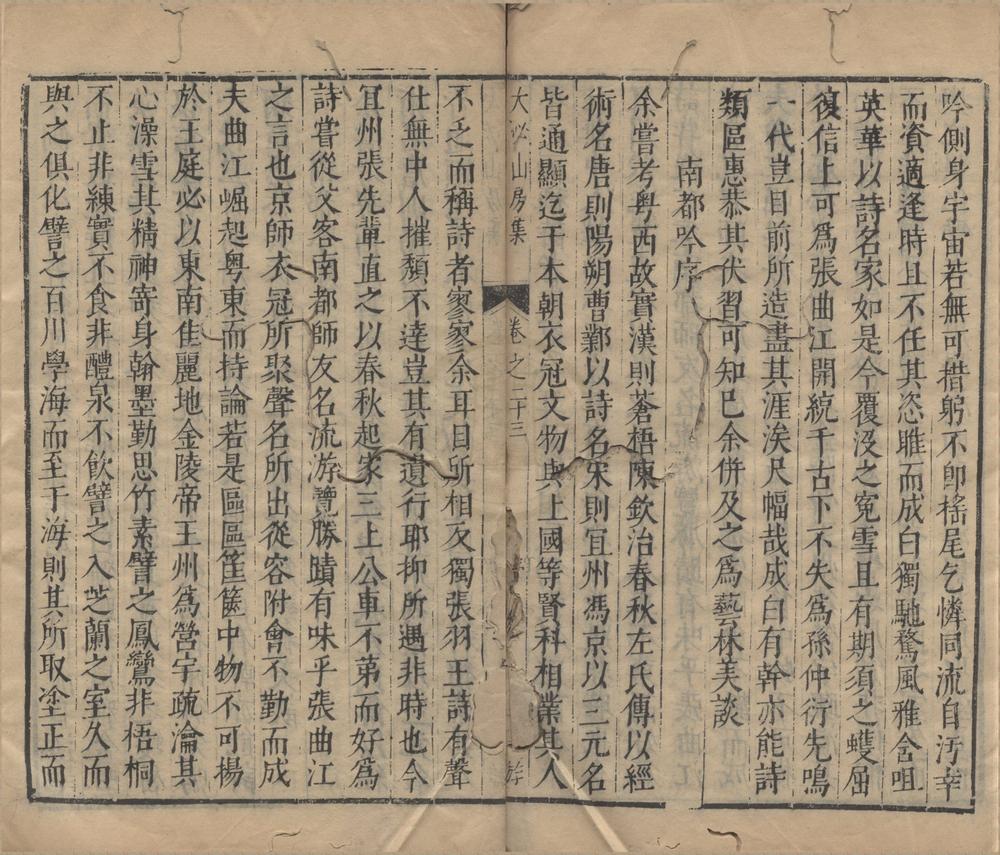 吟側身宇宙若無可措躬不卽搖尾乞憐同流自汚幸
而資適逢時且不任其恣睢而成白獨馳騖風雅含咀
英華以詩名家如是今覆沒之冤雪且有期須之蠖屈
復信上可爲張曲江開統千古下不失爲孫仲衍先鳴
一代豈目前所造盡其涯涘尺幅哉成白有幹亦能詩
類區惠恭其伏習可知已余併及之爲藝林美談
南都吟序
余嘗考粵西故實漢則蒼梧陳欽治春秋左氏傳以經
術名唐則陽朔曹鄴以詩名宋則宜州馮京以三元名
皆通顯迄于本朝衣冠文物與上國等賢科相業其人
大泌山房集 卷之二十三
不乏而稱詩者寥寥余耳目所相及獨張羽王詩有聲
仕無中人摧頹不達豈其有遺行耶抑所遇非時也今
宜州張先輩直之以春秋起家三上公車不第而好爲
詩嘗從父客南都師友名流游覽勝蹟有味乎張曲江
之言也京師衣冠所聚聲名所出從容附會不勤而成
夫曲江崛起粵東而持論若是區區筐篋中物不可揚
於王庭必以東南佳麗地金陵帝王州爲營宇疏瀹其
心澡雪其精神寄身翰墨勤思竹素譬之鳳鸞非梧桐
不止非練實不食非醴泉不飲譬之入芝蘭之室久而
與之俱化譬之百川學海而至于海則其所取塗正而